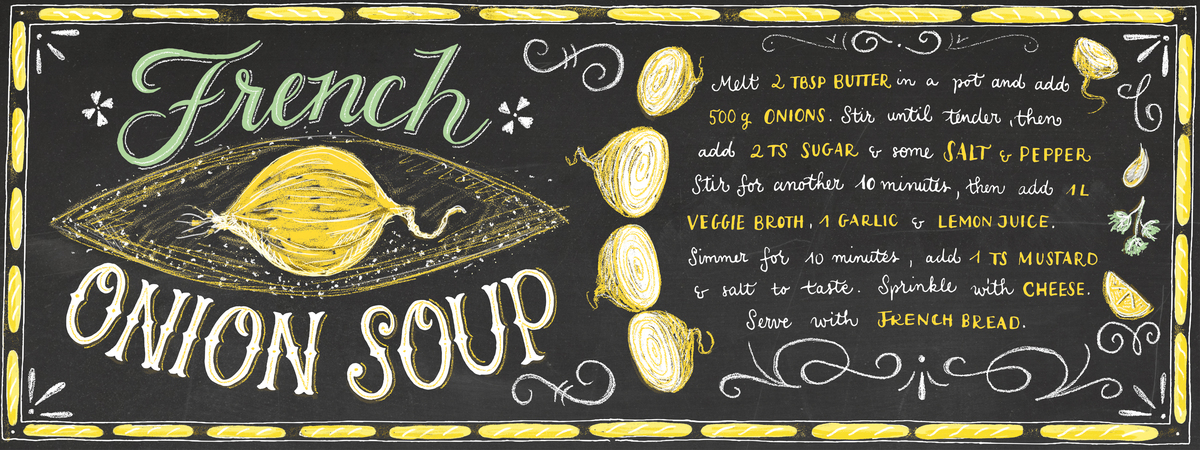 French
ONION SOUP
Melt 2 TBSP BUTTER in a pot and add
500 g ONIONS. Stir until tender, then
add 2 TS SUGAR & some SALT & PEPPER
Stir for another 10 minutes, then add 1 L
VEGGIE BROTH, 1 GARLIC & LEMON JUICE.
Simmer for 10 minutes, add 1 TS MUSTARD
& salt to taste. Sprinkle with CHEESE.
Serve with FRENCH BREAD.